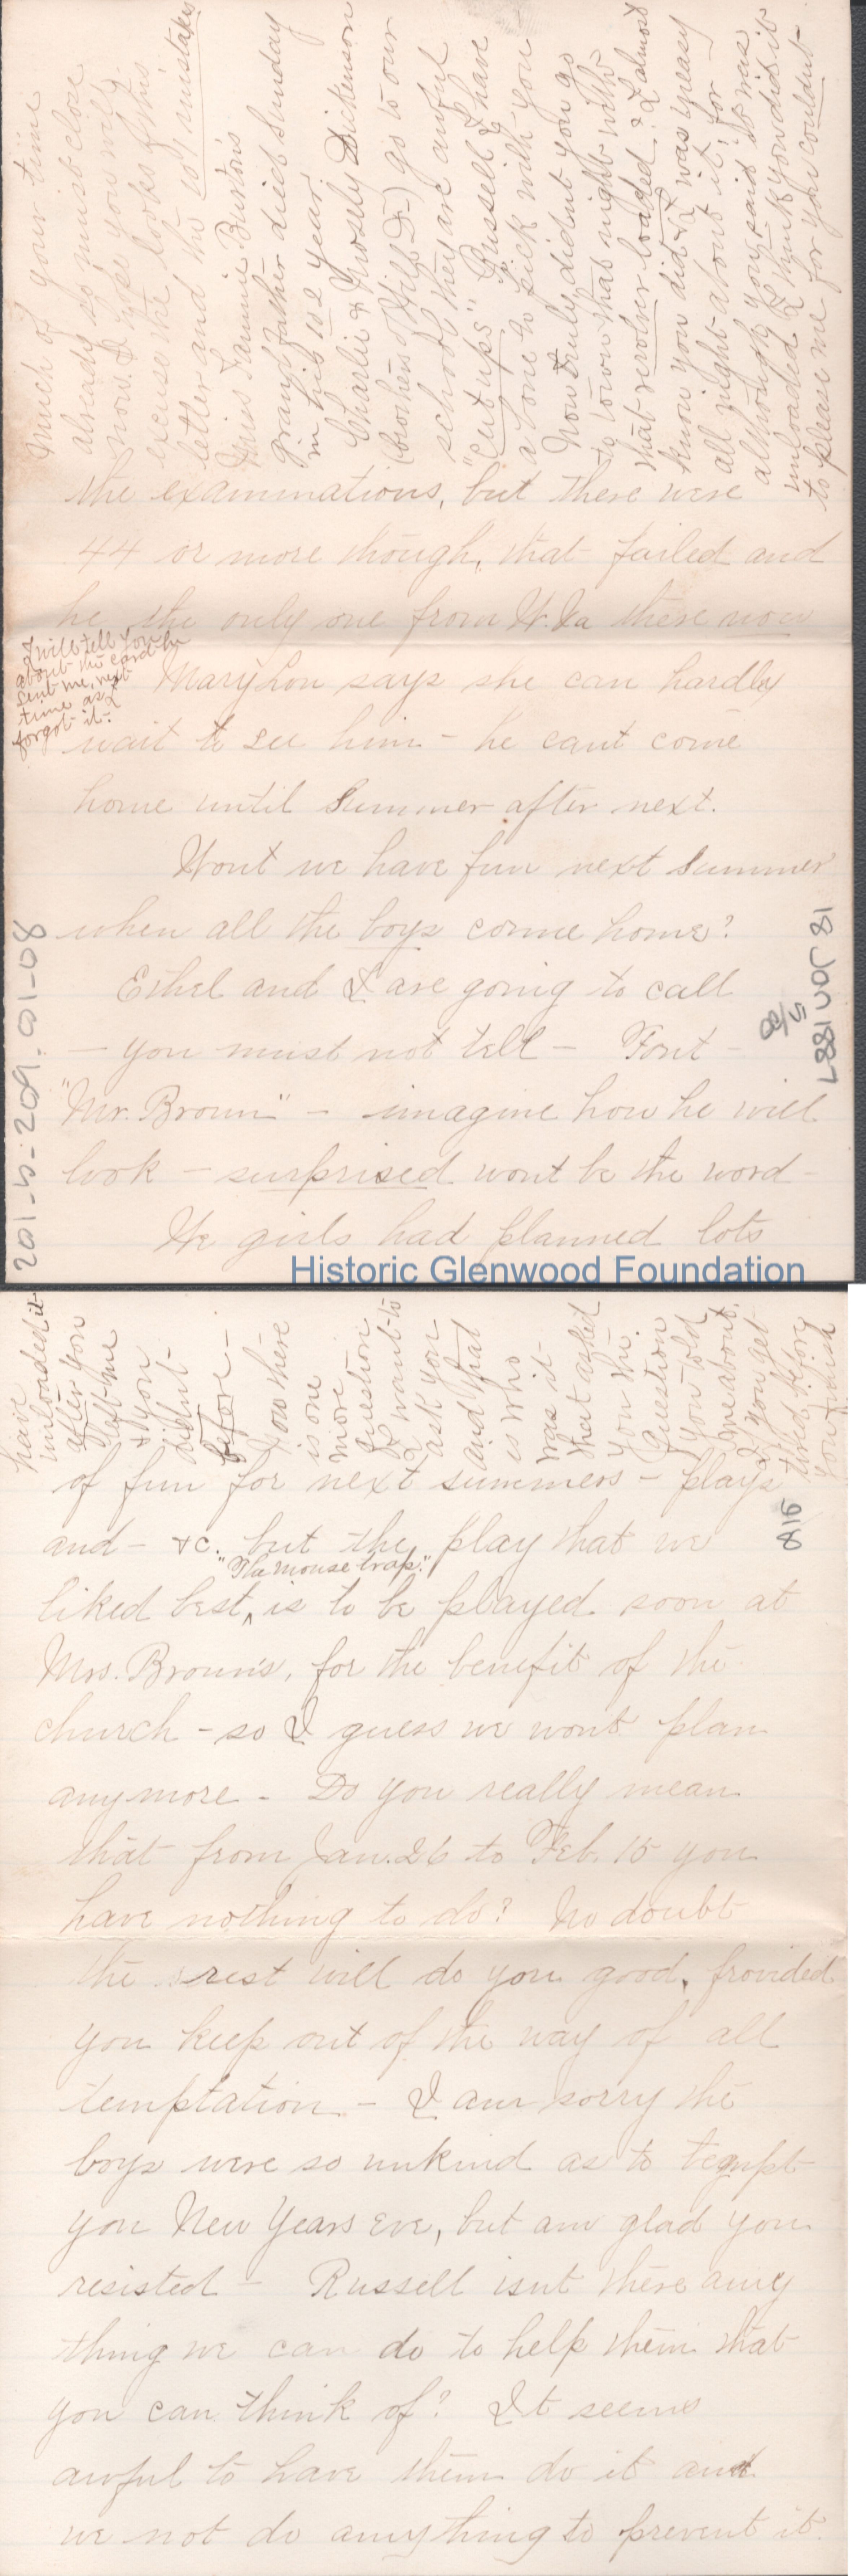 much of your time
already so must close
now. I hope you will
excuse the looks of this
letter and the 101 mistakes
Miss Fannie Burton's
grand father died Sunday
in his 102 year.
Charlie & Mosely Dickenson
(brothers of Hill D-) go to our
school they are awful
"cut ups" Russell I have
a bone to pick with you
Now truly didnt you go
to town that night with
that revolver loaded? I almost
know you did & I was uneasy
all night about it, for
although you said it was
unloaded I think you did it
to please me for you couldnt
the examinations, but there were
44 or more though, that failed and
he, the only one from W. Va there now
I will tell you
about the card he
sent me, next
time as I
forgot it-
Mary Lou says she can hardly
wait to see him - he cant come
home until Summer after next.
Wont we have fun next Summer
when all the boys come home?
Ethel and I are are going to call
- you must not tell - Font -
"Mr. Brown" - imagine how he will
look - surprised wont be the word -
We girls had planned lots
201-5-209.01-08
18 Jan 1887
5/8
Historic Glenwood Foundation
have
unloaded it
after you
left me
& you
didnt
before -
Now there
is one
more
question
I want to
ask you
and that
is who
was it
that asked
you the
question
you told
me about.
If you get
tired before
you finish
of fun for next summers - plays
and - &c. but the play that we
"The mouse trap"
liked best, ^ is to be played soon at
Mrs. Brown's, for the benefit of the
church - so I guess we wont plan
any more - Do you really mean
that from Jan. 26 to Feb. 15 you
have nothing to do? No doubt
the rest will do you good, provided
you keep out of the way of all
temptation - I am sorry the
boys were so unkind as to tempt
you New Years Eve, but am glad you
resisted - Russell isnt there any
thing we can do to help them that
you can think of? It seems
awful to have them do it and
we not do anything to prevent it.